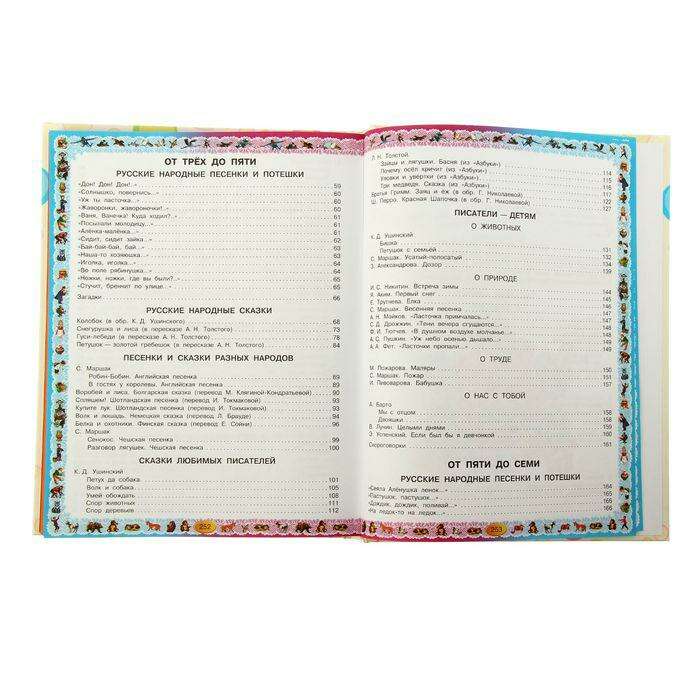 ОТ ТРЁХ ДО ПЯТИ
РУССКИЕ НАРОДНЫЕ ПЕСЕНКИ И ПОТЕШКИ
«Дон! Дон! Дон!..» 59
«Солнышко, повернись...» 60
«Уж ты ласточка...» 60
«Жаворонки, жавороночки!..» 60
«Ваня, Ванечка! Куда ходил?..» 61
«Посылали молодицу...» 61
«Алёнка-малёнка...» 61
«Сидит, сидит зайка...» 62
«Бай-бай-бай, бай...» 63
«Наша-то хозяюшка...» 63
«Иголка, иголка...» 64
«Во поле рябинушка...» 64
«Ножки, ножки, где вы были?..» 65
«Стучит, бренчит по улице...» 65
Загадки 66
РУССКИЕ НАРОДНЫЕ СКАЗКИ
Колобок (в обр. К. Д. Ушинского) 68
Снегурушка и лиса (в пересказе А. Н. Толстого) 73
Гуси-лебеди (в пересказе А. Н. Толстого) 78
Петушок — золотой гребешок (в пересказе А. Н. Толстого) 84
ПЕСЕНКИ И СКАЗКИ РАЗНЫХ НАРОДОВ
С. Маршак
Робин-Бобин. Английская песенка 89
В гостях у королевы. Английская песенка 89
Воробей и лиса. Болгарская сказка (перевод М. Клягиной-Кондратьевой) 90
Спляшем! Шотландская песенка (перевод И. Токмаковой) 93
Купите лук. Шотландская песенка (перевод И. Токмаковой) 93
Волк и лошадь. Немецкая сказка (перевод Л. Брауде) 94
Белка и охотники. Финская сказка (перевод Е. Сойни) 96
С. Маршак
Сенокос. Чешская песенка 99
Разговор лягушек. Чешская песенка 100
СКАЗКИ ЛЮБИМЫХ ПИСАТЕЛЕЙ
К. Д. Ушинский
Петух да собака 101
Волк и собака 105
Умей обождать 108
Спор животных 111
Спор деревьев 112
252
Л. Н. Толстой.
Зайцы и лягушки. Басня (из «Азбуки») 114
Почему осёл кричит (из «Азбуки») 115
Уловки и увёртки (из «Азбуки») 116
Три медведя. Сказка (из «Азбуки») 117
Братья Гримм. Заяц и еж (в обр. Г. Николаевой) 122
Ш. Перро. Красная Шапочка (в обр. Г. Николаевой) 127
ПИСАТЕЛИ — ДЕТЯМ
О ЖИВОТНЫХ
К. Д. Ушинский
Бишка 131
Петушок с семьёй 132
С. Маршак. Усатый-полосатый 134
З. Александрова. Дозор 139
О ПРИРОДЕ
И. С. Никитин. Встреча зимы 144
Я. Аким. Первый снег 144
Е. Трутнева. Ёлка 145
С. Маршак. Весенняя песенка 146
А. Н. Майков. «Ласточка примчалась...» 147
С. Д. Дрожжин. «Тени вечера сгущаются...» 147
Ф. И. Тютчев. «В душном воздухе молчанье...» 148
А. С. Пушкин. «Уж небо осенью дышало...» 149
А. А. Фет. «Ласточки пропали...» 149
О ТРУДЕ
М. Пожарова. Маляры 150
С. Маршак. Пожар 151
И. Пивоварова. Бабушка 157
О НАС С ТОБОЙ
А. Барто
Мы с отцом 158
Двояшки 158
В. Лунин. Целыми днями 159
Э. Успенский. Если был бы я девчонкой 160
Скороговорки 161
ОТ ПЯТИ ДО СЕМИ
РУССКИЕ НАРОДНЫЕ ПЕСЕНКИ И ПОТЕШКИ
«Сеяла Алёнушка ленок...» 164
«Пастушок, пастушок...» 165
«Дождик, дождик, поливай...» 166
«На ледок-то на ледок...» 166
253